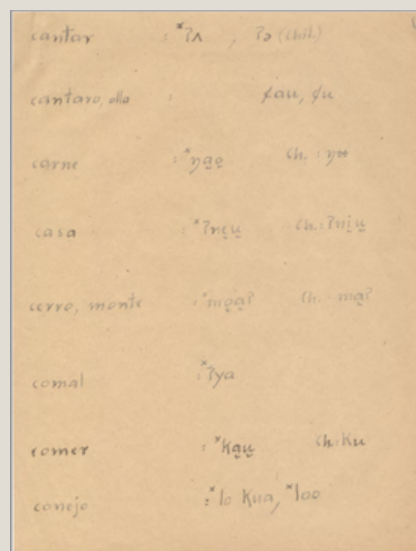 cantar : *ʔʌ , ʔə (chil.)
cantaro, olla : ¢au, ¢u
carne : *ŋa̱o̱ ch. : ŋo
casa : *ʔne̱u̱ ch. : ʔni̱u̱
cerro, monte : *mo̱a̱ʔ ch. : ma̱ʔ
comal : *ʔya
comer : *ka̱u̱ ch : ku
conejo : *lo kua, *loo